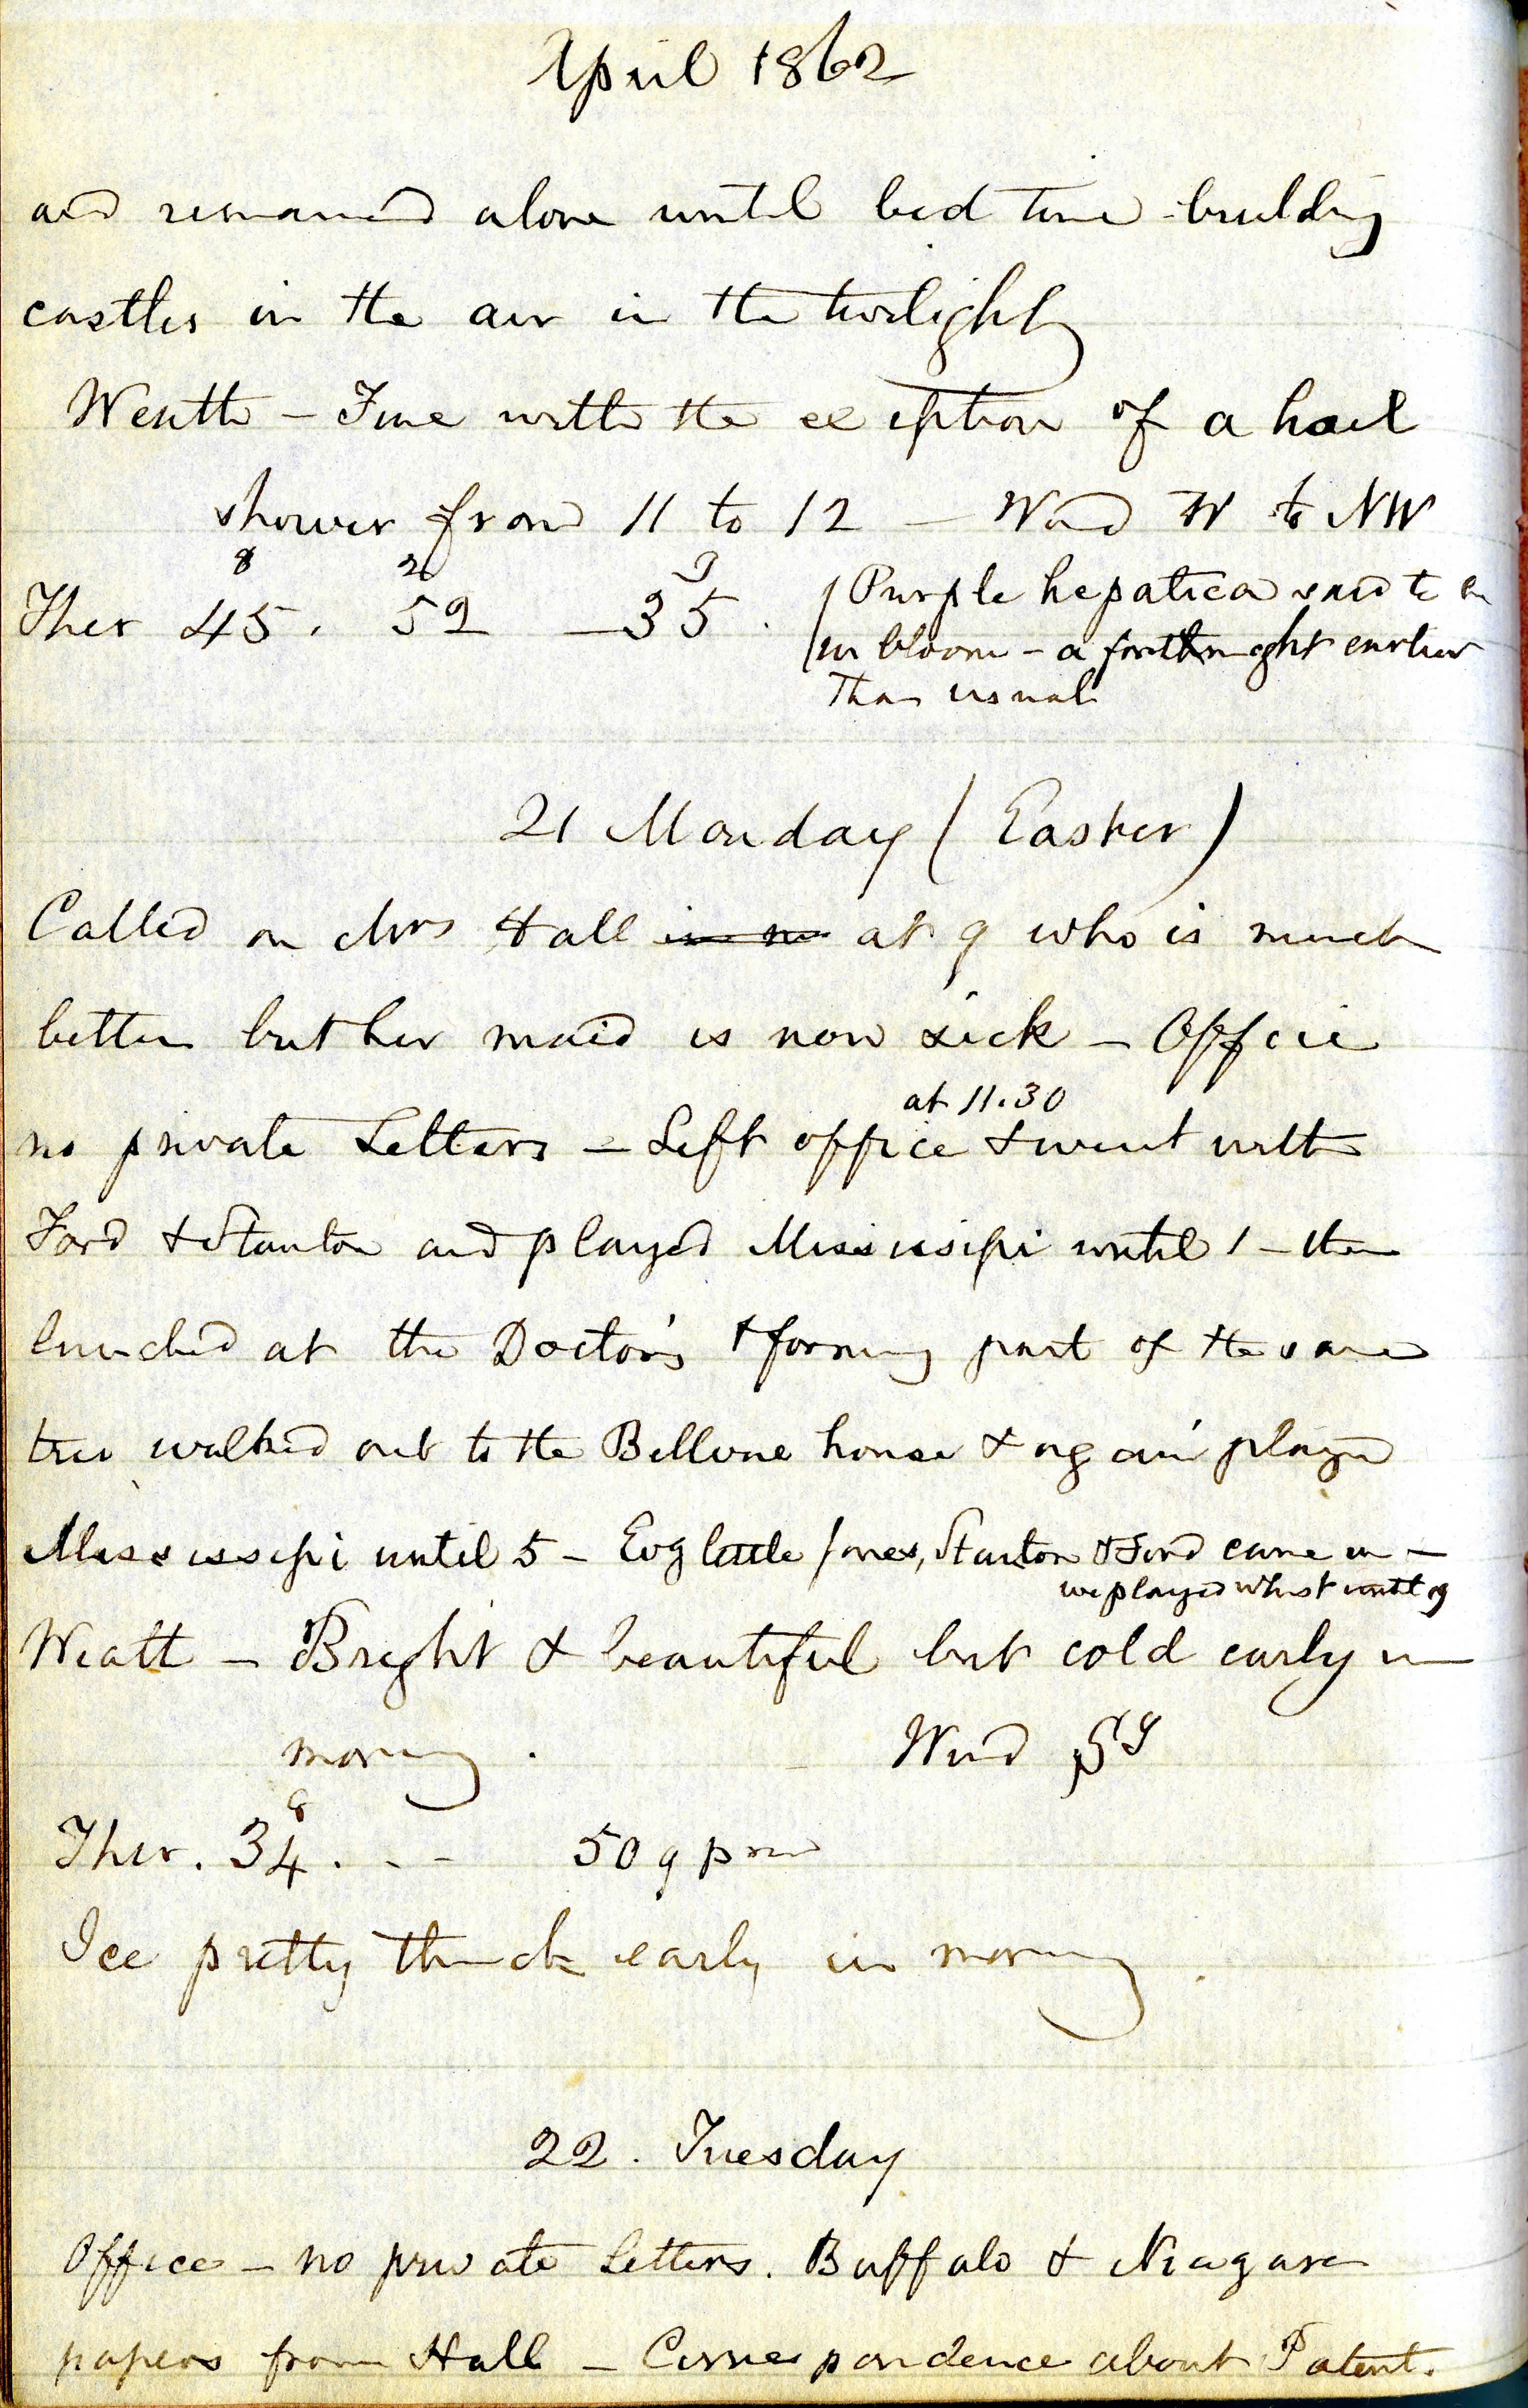 April 1862
and remained alone until bed time building
castles in the air in the twilight
Weath - Fine with the exception of a hail
shower from 11 to 12 - Wind W to NW
8 2 9
Ther 45. 52 - 35.
Purple hepatica said to be
in bloom - a fortnight earlier
than usual
21 Monday (Easter)
Called on Mrs Hall at 9 who is much
better but her maid is now sick - Office
at 11.30
no private Letters - Left office & went with
Ford & Stanton and played Mississipi until 1 - then
lunched at the Doctor's & forming part of the same
trio walked out to the Bellvue house & again played
Mississipi until 5 - Evg little Jones, Stanton & Ford came in -
we played whist until 9
Weath - Bright & beautiful but cold early in
morning. Wind
8
Ther. 34. - - 50 9 pm
Ice pretty thick early in morning.
22. Tuesday
Office - no private letters. Buffalo & Niagara
papers from Hall - Correspondence about Patent.